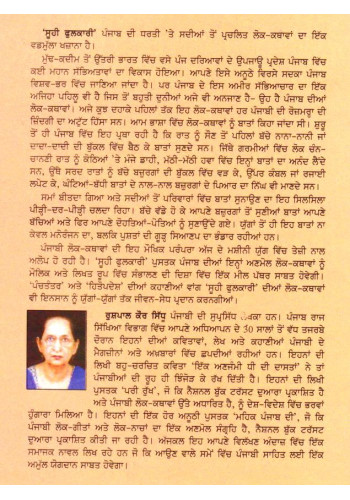 'ਸੂਹੀ ਫੁਲਕਾਰੀ' ਪੰਜਾਬ ਦੀ ਧਰਤੀ 'ਤੇ ਸਦੀਆਂ ਤੋਂ ਪ੍ਰਚਲਿਤ ਲੋਕ-ਕਥਾਵਾਂ ਦਾ ਇੱਕ
ਵਡਮੁੱਲਾ ਖ਼ਜ਼ਾਨਾ ਹੈ।
ਮੁੱਢ-ਕਦੀਮ ਤੋਂ ਉੱਤਰੀ ਭਾਰਤ ਵਿੱਚ ਵਸੇ ਪੰਜ ਦਰਿਆਵਾਂ ਦੇ ਉਪਜਾਊ ਪ੍ਰਦੇਸ਼ ਪੰਜਾਬ ਵਿੱਚ
ਕਈ ਮਹਾਨ ਸੱਭਿਅਤਾਵਾਂ ਦਾ ਵਿਕਾਸ ਹੋਇਆ। ਆਪਣੇ ਇਸੇ ਅਨੂਠੇ ਵਿਰਸੇ ਸਦਕਾ ਪੰਜਾਬ
ਵਿਸ਼ਵ-ਭਰ ਵਿੱਚ ਜਾਣਿਆ ਜਾਂਦਾ ਹੈ। ਪਰ ਪੰਜਾਬ ਦੇ ਇਸ ਅਮੀਰ ਸੱਭਿਆਚਾਰ ਦਾ ਇੱਕ
ਅਜਿਹਾ ਪਹਿਲੂ ਵੀ ਹੈ ਜਿਸ ਤੋਂ ਬਹੁਤੀ ਦੁਨੀਆਂ ਅਜੇ ਵੀ ਅਨਜਾਣ ਹੈ- ਉਹ ਹੈ ਪੰਜਾਬ ਦੀਆਂ
ਲੋਕ-ਕਥਾਵਾਂ। ਅਜੇ ਕੁਝ ਦਹਾਕੇ ਪਹਿਲਾਂ ਤੱਕ ਇਹ ਲੋਕ-ਕਥਾਵਾਂ ਹਰ ਪੰਜਾਬੀ ਦੀ ਰੋਜ਼ਮਰ੍ਹਾ ਦੀ
ਜ਼ਿੰਦਗੀ ਦਾ ਅਟੁੱਟ ਹਿੱਸਾ ਸਨ। ਆਮ ਭਾਸ਼ਾ ਵਿੱਚ ਲੋਕ-ਕਥਾਵਾਂ ਨੂੰ ਬਾਤਾਂ ਕਿਹਾ ਜਾਂਦਾ ਸੀ। ਸ਼ੁਰੂ
ਤੋਂ ਹੀ ਪੰਜਾਬ ਵਿੱਚ ਇਹ ਪ੍ਰਥਾ ਰਹੀ ਹੈ ਕਿ ਰਾਤ ਨੂੰ ਸੌਣ ਤੋਂ ਪਹਿਲਾਂ ਬੱਚੇ ਨਾਨਾ-ਨਾਨੀ ਜਾਂ
ਦਾਦਾ-ਦਾਦੀ ਦੀ ਬੁੱਕਲ ਵਿੱਚ ਬੈਠ ਕੇ ਬਾਤਾਂ ਸੁਣਦੇ ਸਨ। ਜਿੱਥੇ ਗਰਮੀਆਂ ਵਿੱਚ ਲੋਕ ਚੰਨ-
ਚਾਨਣੀ ਰਾਤ ਨੂੰ ਕੋਠਿਆਂ 'ਤੇ ਮੰਜੇ ਡਾਹੀ, ਮੱਠੀ-ਮੱਠੀ ਹਵਾ ਵਿੱਚ ਇਨ੍ਹਾਂ ਬਾਤਾਂ ਦਾ ਅਨੰਦ ਲੈਂਦੇ
ਸਨ, ਉੱਥੇ ਸਰਦ ਰਾਤਾਂ ਨੂੰ ਬੱਚੇ ਬਜ਼ੁਰਗਾਂ ਦੀ ਬੁੱਕਲ ਵਿੱਚ ਵੜ ਕੇ, ਉੱਪਰ ਕੰਬਲ ਜਾਂ ਰਜਾਈ
ਲਪੇਟ ਕੇ, ਘੰਟਿਆਂ-ਬੱਧੀ ਬਾਤਾਂ ਦੇ ਨਾਲ-ਨਾਲ ਬਜ਼ੁਰਗਾਂ ਦੇ ਪਿਆਰ ਦਾ ਨਿੱਘ ਵੀ ਮਾਣਦੇ ਸਨ।
ਸਮਾਂ ਬੀਤਦਾ ਗਿਆ ਅਤੇ ਸਦੀਆਂ ਤੋਂ ਪਰਿਵਾਰਾਂ ਵਿੱਚ ਬਾਤਾਂ ਸੁਨਾਉਣ ਦਾ ਇਹ ਸਿਲਸਿਲਾ
ਪੀੜ੍ਹੀ-ਦਰ-ਪੀੜ੍ਹੀ ਚਲਦਾ ਰਿਹਾ। ਬੱਚੇ ਵੱਡੇ ਹੋ ਕੇ ਆਪਣੇ ਬਜ਼ੁਰਗਾਂ ਤੋਂ ਸੁਣੀਆਂ ਬਾਤਾਂ ਆਪਣੇ
ਬੱਚਿਆਂ ਅਤੇ ਫਿਰ ਆਪਣੇ ਦੋਹਤਿਆਂ-ਪੋਤਿਆਂ ਨੂੰ ਸੁਣਾਉਂਦੇ ਗਏ। ਯੁੱਗਾਂ ਤੋਂ ਹੀ ਇਹ ਬਾਤਾਂ ਨਾ
ਕੇਵਲ ਮਨੋਰੰਜਨ ਦਾ, ਬਲਕਿ ਪੁਸ਼ਤਾਂ ਦੀ ਗੂੜ੍ਹ ਸਿਆਣਪ ਦਾ ਭੰਡਾਰ ਰਹੀਆਂ ਹਨ।
ਪੰਜਾਬੀ ਲੋਕ-ਕਥਾਵਾਂ ਦੀ ਇਹ ਮੌਖਿਕ ਪਰੰਪਰਾ ਅੱਜ ਦੇ ਮਸ਼ੀਨੀ ਯੁੱਗ ਵਿੱਚ ਤੇਜ਼ੀ ਨਾਲ
ਅਲੋਪ ਹੋ ਰਹੀ ਹੈ। 'ਸੂਹੀ ਫੁਲਕਾਰੀ' ਪੁਸਤਕ ਪੰਜਾਬ ਦੀਆਂ ਇਨ੍ਹਾਂ ਅਣਮੋਲ ਲੋਕ-ਕਥਾਵਾਂ ਨੂੰ
ਮੌਲਿਕ ਅਤੇ ਲਿਖਤ ਰੂਪ ਵਿੱਚ ਸੰਭਾਲਣ ਦੀ ਦਿਸ਼ਾ ਵਿੱਚ ਇੱਕ ਮੀਲ ਪੱਥਰ ਸਾਬਤ ਹੋਵੇਗੀ।
'ਪੰਚਤੰਤਰ' ਅਤੇ 'ਹਿਤੋਪਦੇਸ਼' ਦੀਆਂ ਕਹਾਣੀਆਂ ਵਾਂਗ 'ਸੂਹੀ ਫੁਲਕਾਰੀ' ਦੀਆਂ ਲੋਕ-ਕਥਾਵਾਂ
ਵੀ ਇਨਸਾਨ ਨੂੰ ਯੁੱਗਾਂ-ਯੁੱਗਾਂ ਤੱਕ ਜੀਵਨ-ਸੇਧ ਪ੍ਰਦਾਨ ਕਰਨਗੀਆਂ।
ਰੁਸ਼ਪਾਲ ਕੌਰ ਸਿੱਧੂ ਪੰਜਾਬੀ ਦੀ ਸੁਪ੍ਰਸਿੱਧ ਹਨ। ਪੰਜਾਬ ਰਾਜ
ਸਿੱਖਿਆ ਵਿਭਾਗ ਵਿੱਚ ਆਪਣੇ ਅਧਿਆਪਨ ਦੇ 30 ਸਾਲਾਂ ਤੋਂ ਵੱਧ ਤਜਰਬੇ
ਦੌਰਾਨ ਇਹਨਾਂ ਦੀਆਂ ਕਵਿਤਾਵਾਂ, ਲੇਖ ਅਤੇ ਕਹਾਣੀਆਂ ਪੰਜਾਬੀ ਦੇ
ਮੈਗਜ਼ੀਨਾਂ ਅਤੇ ਅਖ਼ਬਾਰਾਂ ਵਿੱਚ ਛਪਦੀਆਂ ਰਹੀਆਂ ਹਨ। ਇਹਨਾਂ ਦੀ
ਲਿਖੀ ਬਹੁ-ਚਰਚਿਤ ਕਵਿਤਾ 'ਇੱਕ ਅਣਜੰਮੀ ਧੀ ਦੀ ਦਾਸਤਾਂ' ਨੇ ਤਾਂ
ਪੰਜਾਬੀਆਂ ਦੀ ਰੂਹ ਹੀ ਝਿੰਜੋੜ ਕੇ ਰੱਖ ਦਿੱਤੀ ਹੈ। ਇਹਨਾਂ ਦੀ ਲਿਖੀ
ਪੁਸਤਕ 'ਪਰੀ ਰੁੱਖ', ਜੋ ਕਿ ਨੈਸ਼ਨਲ ਬੁੱਕ ਟਰੱਸਟ ਦੁਆਰਾ ਪ੍ਰਕਾਸ਼ਿਤ ਹੈ
ਅਤੇ ਪੰਜਾਬੀ ਲੋਕ-ਕਥਾਵਾਂ ਉੱਤੇ ਅਧਾਰਿਤ ਹੈ, ਨੂੰ ਦੇਸ਼-ਵਿਦੇਸ਼ ਵਿੱਚ ਭਰਵਾਂ
ਹੁੰਗਾਰਾ ਮਿਲਿਆ ਹੈ। ਇਹਨਾਂ ਦੀ ਇੱਕ ਹੋਰ ਅਨੂਠੀ ਪੁਸਤਕ 'ਮਹਿਕ ਪੰਜਾਬ ਦੀ', ਜੋ ਕਿ
ਪੰਜਾਬੀ ਲੋਕ-ਗੀਤਾਂ ਅਤੇ ਲੋਕ-ਨਾਚਾਂ ਦਾ ਇੱਕ ਅਣਮੋਲ ਸੰਗ੍ਰਹਿ ਹੈ, ਨੈਸ਼ਨਲ ਬੁੱਕ ਟਰੱਸਟ
ਦੁਆਰਾ ਪ੍ਰਕਾਸ਼ਿਤ ਕੀਤੀ ਜਾ ਰਹੀ ਹੈ। ਅੱਜਕਲ ਇਹ ਆਪਣੇ ਵਿਲੱਖਣ ਅੰਦਾਜ਼ ਵਿੱਚ ਇੱਕ
ਸਮਾਜਕ ਨਾਵਲ ਲਿਖ ਰਹੇ ਹਨ ਜੋ ਕਿ ਆਉਣ ਵਾਲੇ ਸਮੇਂ ਵਿੱਚ ਪੰਜਾਬੀ ਸਾਹਿਤ ਲਈ ਇੱਕ
ਅਮੁੱਲ ਯੋਗਦਾਨ ਸਾਬਤ ਹੋਵੇਗਾ।